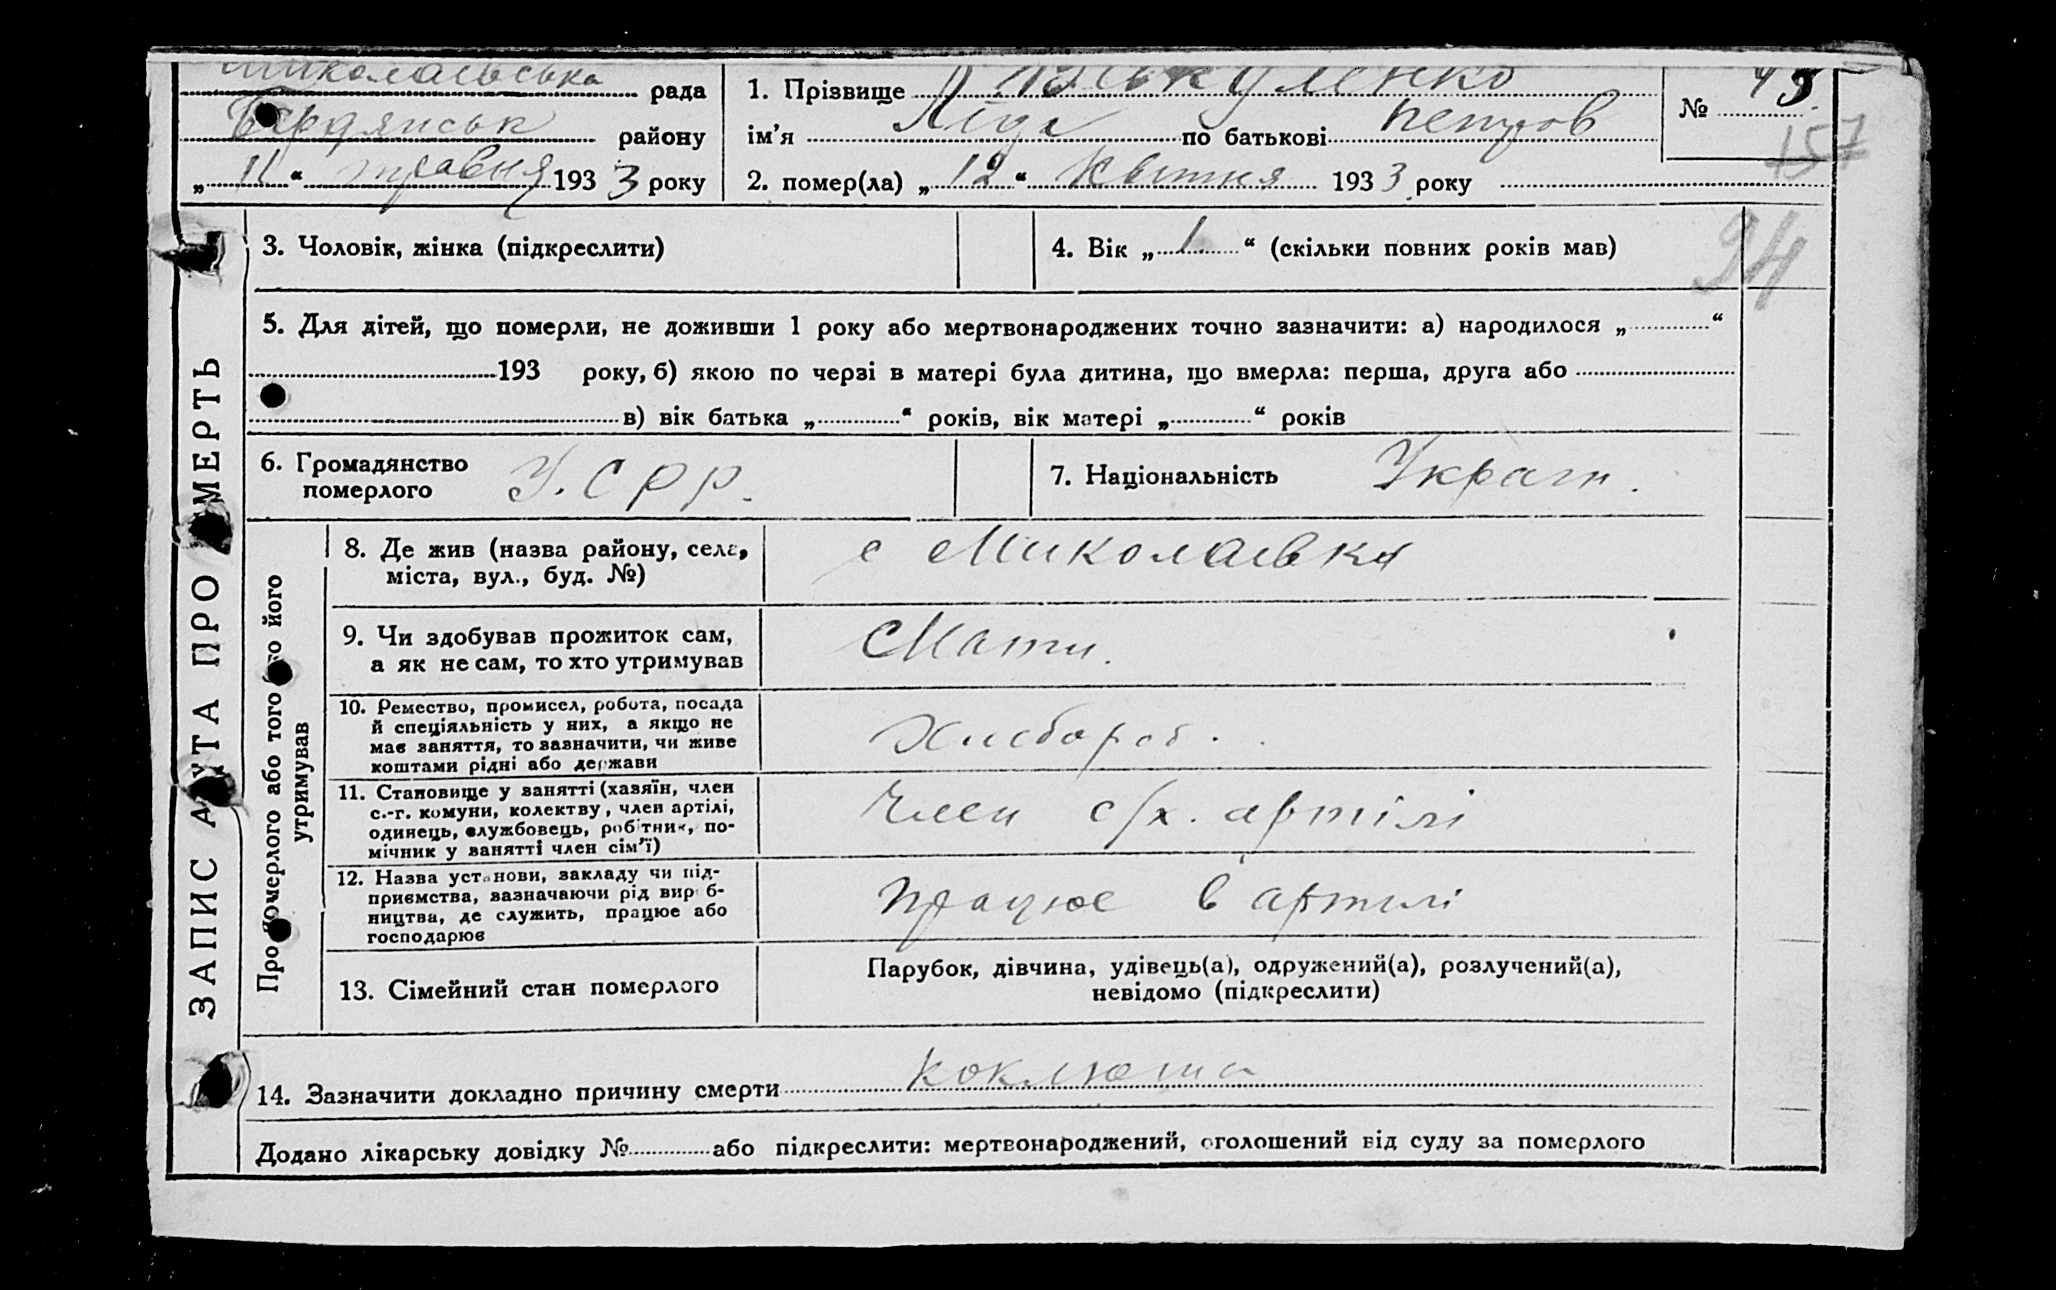 Миколаївська рада
Бердянськ району
„ 11 “ травня 193 3 року
1. Прізвище
ім’я Ліда по батькові Петров
№ 43
157
2. помер(ла) „ 12 “ квітня 193 3 року
3. Чоловік, жінка (підкреслити)
4. Вік „ 1 “ (скільки повних років мав)
94
5. Для дітей, що померли, не доживши 1 року або мертвонароджених точно зазначити: а) народилося „ “
193 року, б) якою по черзі в матері була дитина, що вмерла: перша, друга або
в) вік батька „ “ років, вік матері „ “ років
6. Громадянство
померлого
У.С.Р.Р.
7. Національність Украін.
ЗАПИС АКТА ПРО СМЕРТЬ
Про померлого або того хто його
утримував
8. Де жив (назва району, села,
міста, вул., буд. №)
с Миколаївка
9. Чи здобував прожиток сам,
а як не сам, то хто утримував
Мати.
10. Ремество, промисел, робота, посада
й спеціяльність у них, а якщо не
мав заняття, то зазначити, чи живе
коштами рідні або держави
Хлібороб.
11. Становище у занятті (хазяїн, член
с.-г. комуни, колективу, член артілі,
одинець, службовець, робітник, по-
мічник у занятті член сім’ї)
Член с/х. артілі
12. Назва установи, закладу чи під-
приємства, зазначаючи рід вироб-
ництва, де служить, працює або
господарює
працює в артилі
13. Сімейний стан померлого
Парубок, дівчина, удівець(а), одружений(а), розлучений(а),
невідомо (підкреслити)
14. Зазначити докладно причину смерти коклюша
Додано лікарську довідку № або підкреслити: мертвонароджений, оголошений від суду за померлого